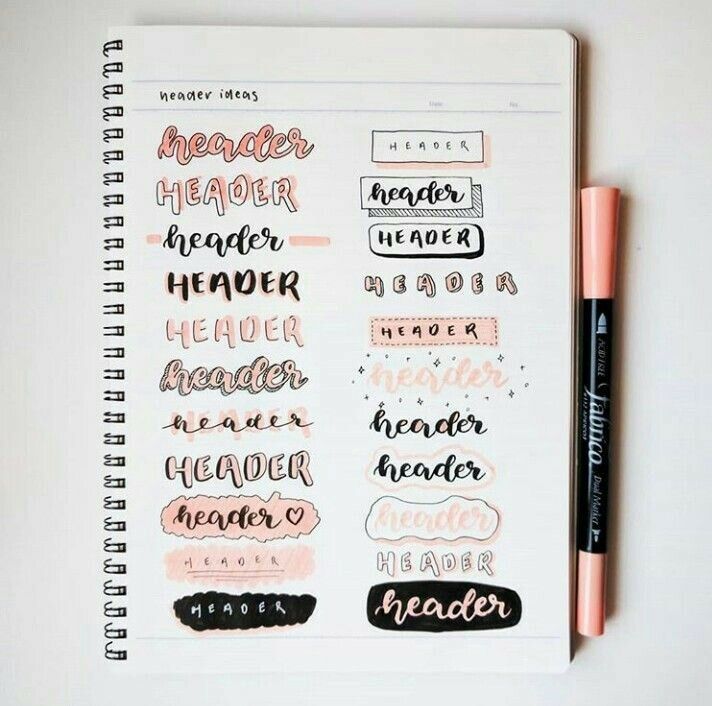 header ideas
Date No.
header
HEADER
header
HEADER
HEADER
header
header
HEADER
header
HEADER
HEADER
HEADER
header
HEADER
HEADER
HEADER
header
header
header
header
HEADER
header
ACID FREE
fabrico
Dual Marker